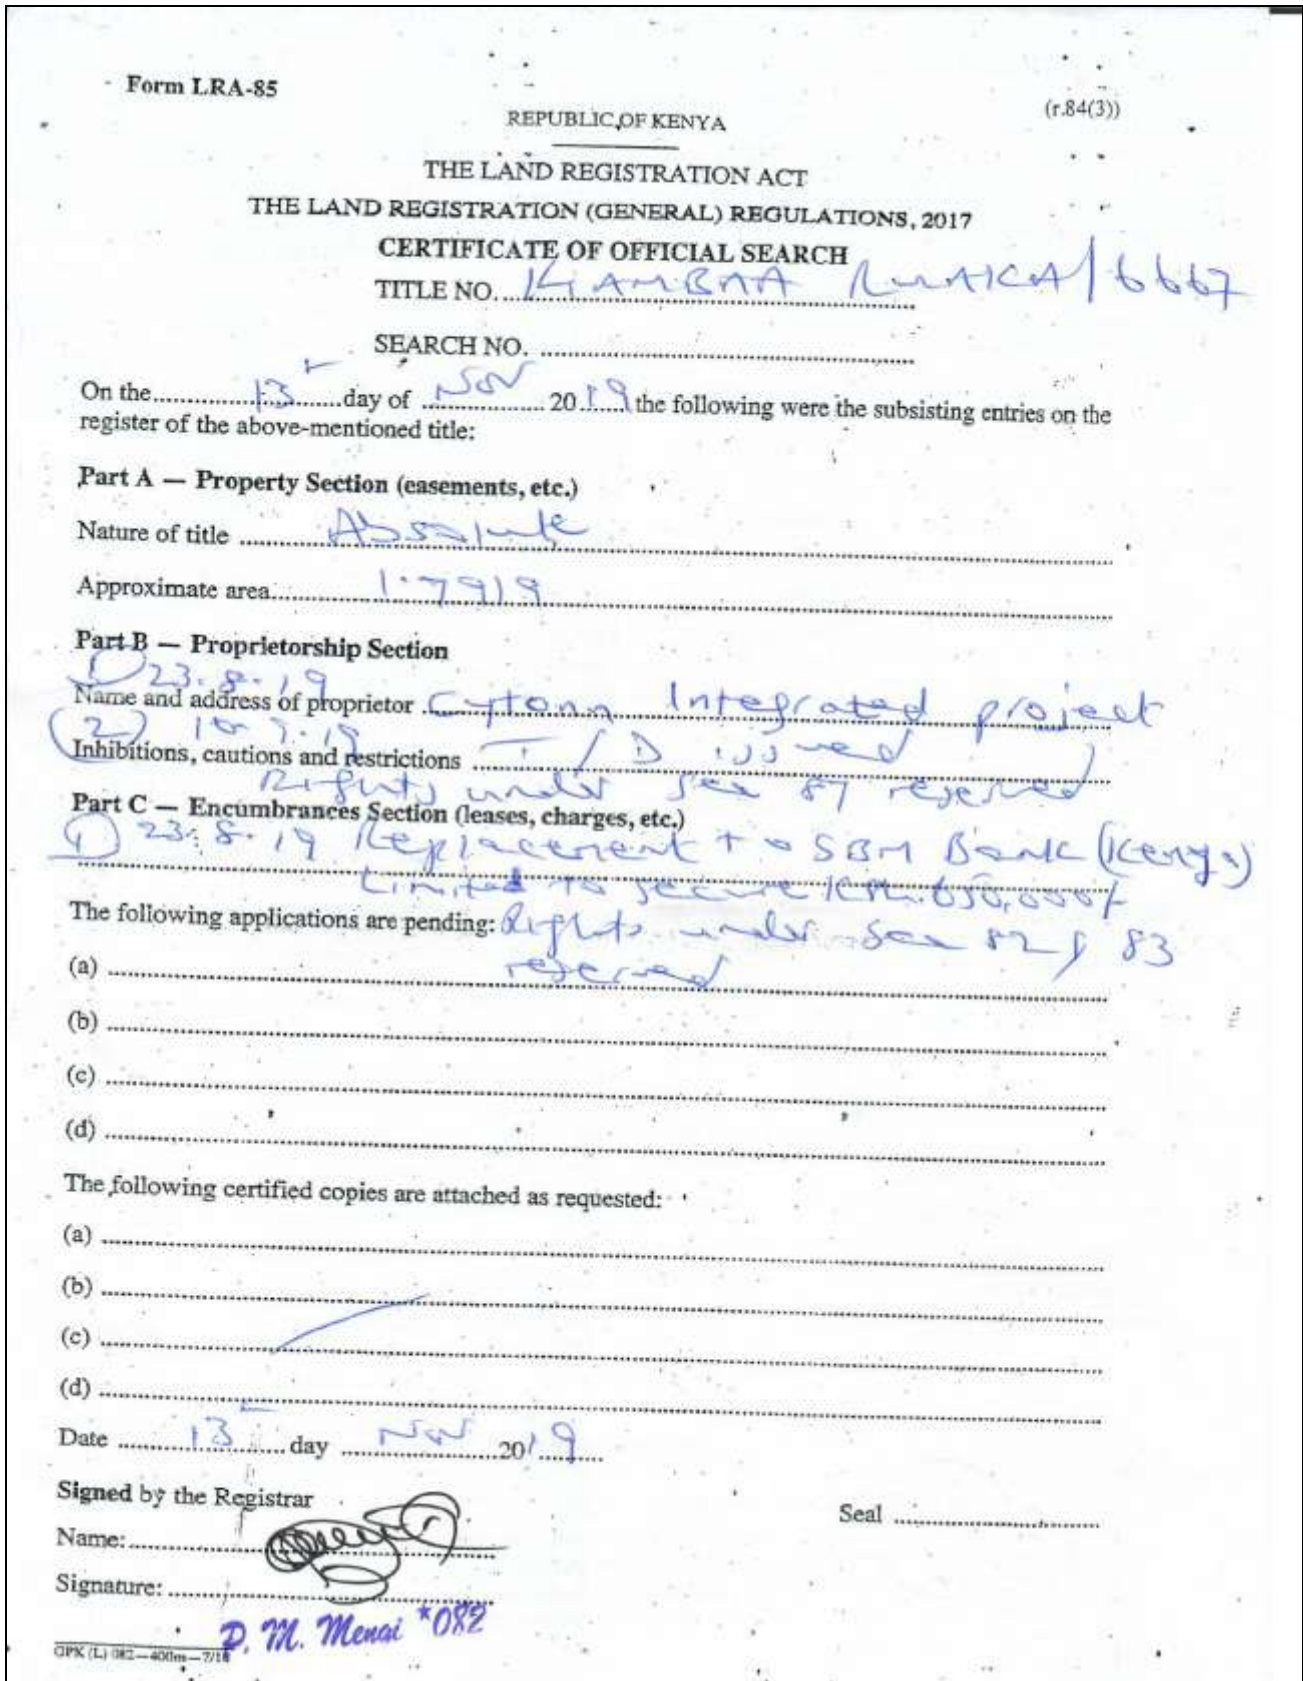 Form LRA-85
(r.84(3))
REPUBLIC OF KENYA
THE LAND REGISTRATION ACT
THE LAND REGISTRATION (GENERAL) REGULATIONS, 2017
CERTIFICATE OF OFFICIAL SEARCH
TITLE NO. KIAMBAA RUAKA/6667
SEARCH NO.
On the 13 day of Nov 2019 the following were the subsisting entries on the
register of the above-mentioned title:
Part A — Property Section (easements, etc.)
Nature of title Absolute
Approximate area 1.7919
Part B — Proprietorship Section
(1) 23.8.19
Name and address of proprietor Cytonn Integrated project
(2)
Inhibitions, cautions and restrictions T/D issued
Rights under sec 87 reserved
Part C — Encumbrances Section (leases, charges, etc.)
(1) 23.8.19 Replacement to SBM Bank (Kenya)
Limited to secure Ksh. 650,000/
The following applications are pending: Rights under sec 82 & 83
reserved
(a)
(b)
(c)
(d)
The following certified copies are attached as requested:
(a)
(b)
(c)
(d)
Date 13 day Nov 2019
Signed by the Registrar
Seal
Name:
Signature:
P. M. Menai *082
GPK (L) 082—400m—7/18